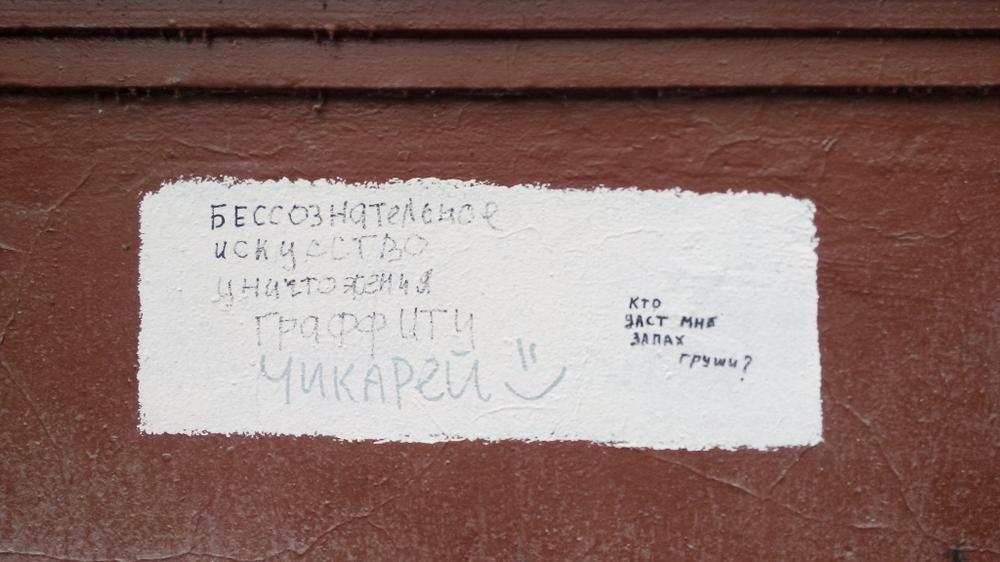 БЕССОЗНАТЕЛЬНОЕ
ИСКУССТВО
УНИЧТОЖЕНИЯ
ГРАФФИТИ
ЧИКАРЕЙ
КТО
ДАСТ МНЕ
ЗАПАХ
ГРУШИ?